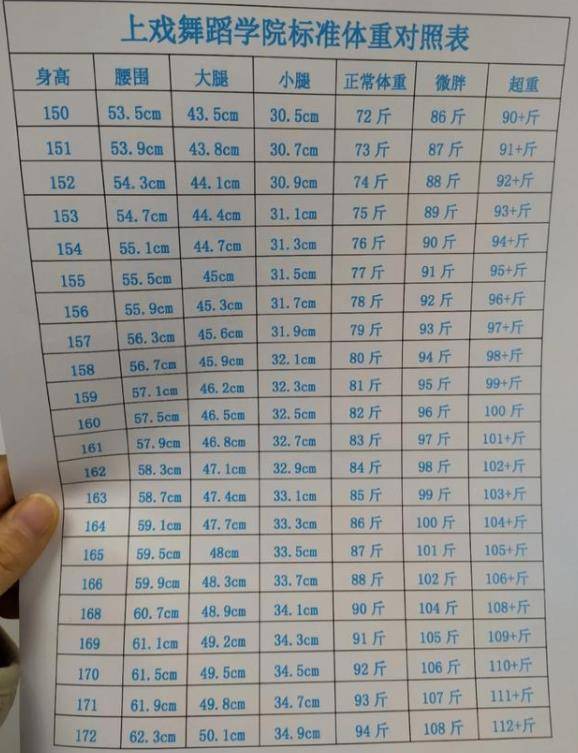 上戏舞蹈学院标准体重对照表
身高 腰围 大腿 小腿 正常体重 微胖 超重
150 53.5cm 43.5cm 30.5cm 72斤 86斤 90+斤
151 53.9cm 43.8cm 30.7cm 73斤 87斤 91+斤
152 54.3cm 44.1cm 30.9cm 74斤 88斤 92+斤
153 54.7cm 44.4cm 31.1cm 75斤 89斤 93+斤
154 55.1cm 44.7cm 31.3cm 76斤 90斤 94+斤
155 55.5cm 45cm 31.5cm 77斤 91斤 95+斤
156 55.9cm 45.3cm 31.7cm 78斤 92斤 96+斤
157 56.3cm 45.6cm 31.9cm 79斤 93斤 97+斤
158 56.7cm 45.9cm 32.1cm 80斤 94斤 98+斤
159 57.1cm 46.2cm 32.3cm 81斤 95斤 99+斤
160 57.5cm 46.5cm 32.5cm 82斤 96斤 100斤
161 57.9cm 46.8cm 32.7cm 83斤 97斤 101+斤
162 58.3cm 47.1cm 32.9cm 84斤 98斤 102+斤
163 58.7cm 47.4cm 33.1cm 85斤 99斤 103+斤
164 59.1cm 47.7cm 33.3cm 86斤 100斤 104+斤
165 59.5cm 48cm 33.5cm 87斤 101斤 105+斤
166 59.9cm 48.3cm 33.7cm 88斤 102斤 106+斤
168 60.7cm 48.9cm 34.1cm 90斤 104斤 108+斤
169 61.1cm 49.2cm 34.3cm 91斤 105斤 109+斤
170 61.5cm 49.5cm 34.5cm 92斤 106斤 110+斤
171 61.9cm 49.8cm 34.7cm 93斤 107斤 111+斤
172 62.3cm 50.1cm 34.9cm 94斤 108斤 112+斤